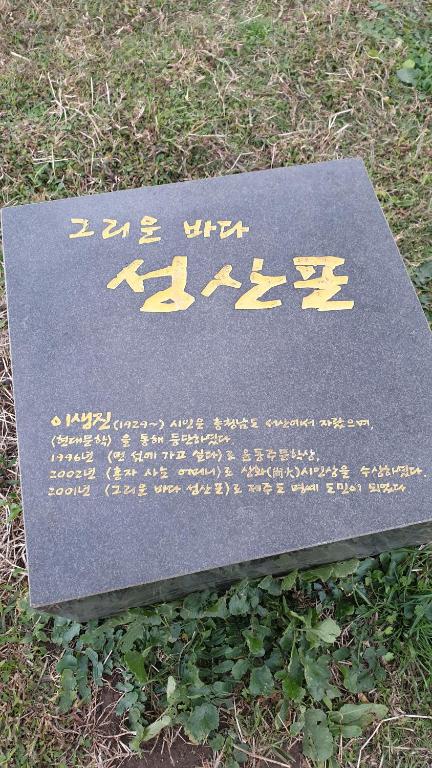 그리운 바다
성산포
이생진(1929~) 시인은 충청남도 서산에서 자랐으며,
(현대문학) 을 통해 등단하였다.
1996년 (먼 섬에 가고 싶다)로 윤동주문학상,
2002년 (혼자 사는 어머니)로 상화(尙火)시인상을 수상하였다.
2001년 (그리운 바다 성산포)로 제주도 명예 도민이 되었다